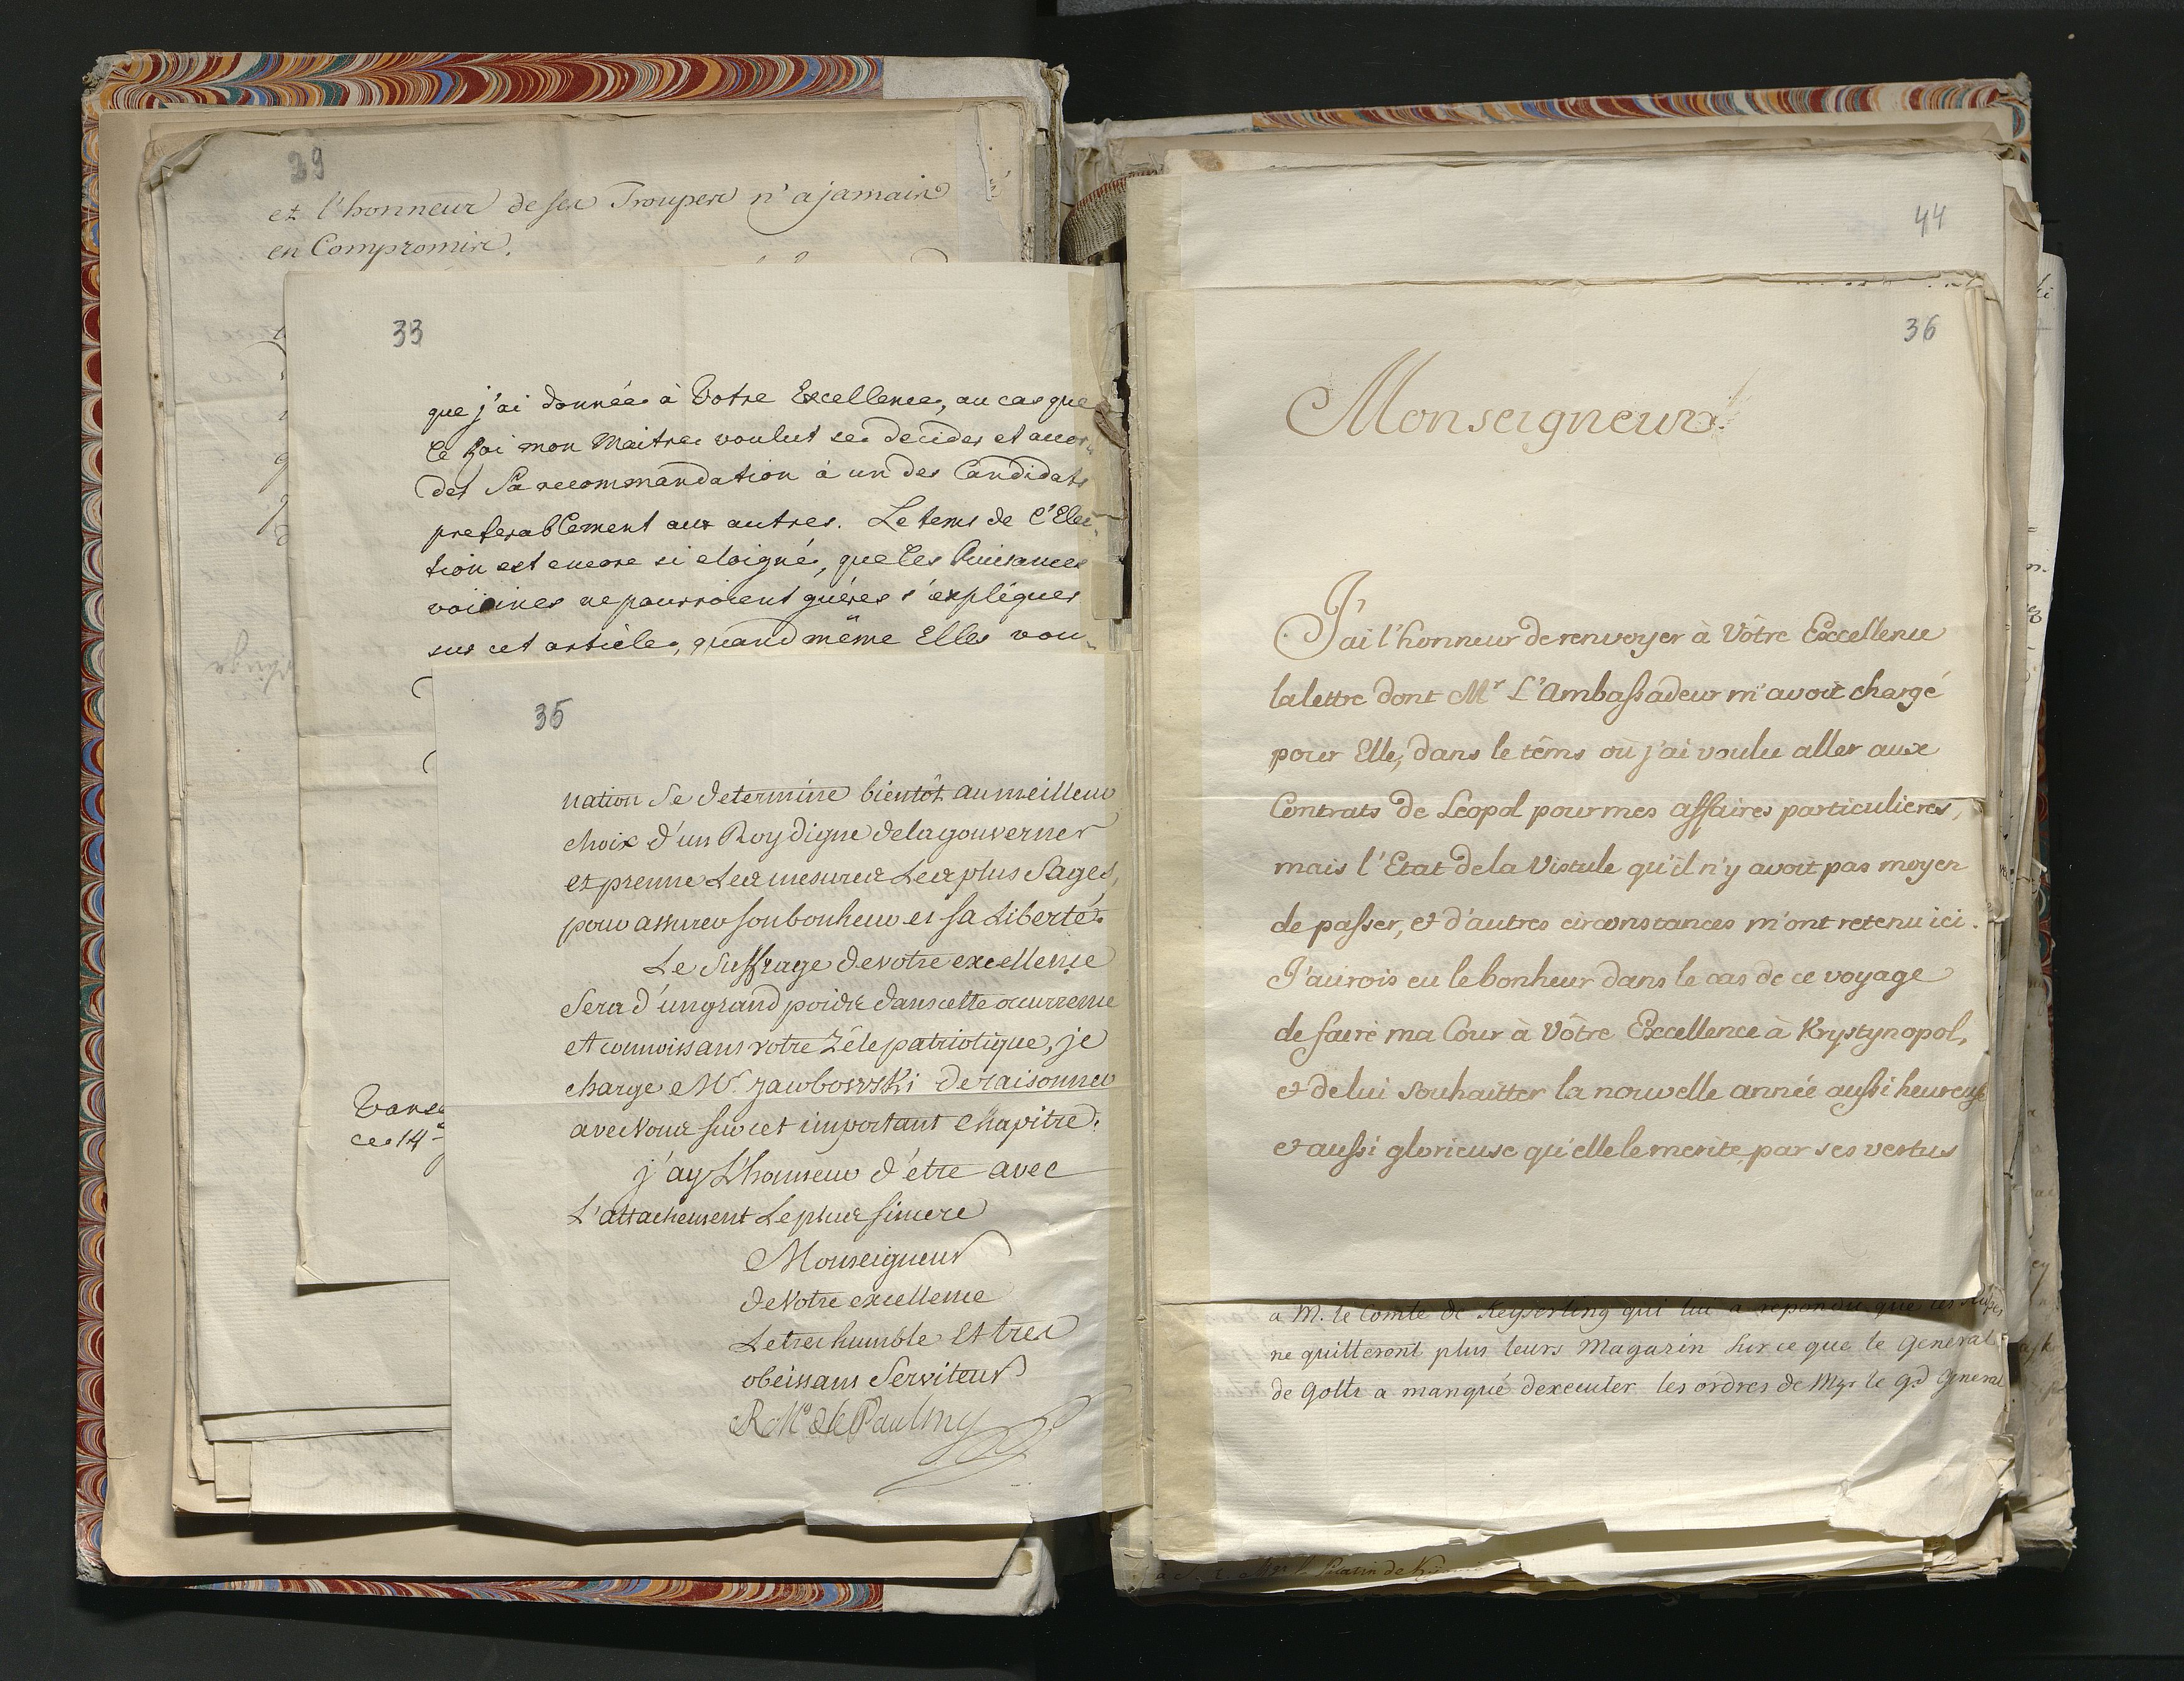 29
et l'honneur de ses Troupes n'a jamais
en Compromis.
33
que j'ai donnée à Votre Excellence, au cas que
le Roi mon Maitre voulut se decider et accor-
der Sa recommandation à un des Candidats
preferablement aux autres. Le tems de l'Elec-
tion est encore si eloigné, que les Puissances
voisines ne pourroient guéres s'expliquer
sur cet article, quand même Elles vou-
Vars
ce 14
35
nation se determine bientôt au meilleur
choix d'un Roy digne de la gouverner
et prenne les mesures les plus sages,
pour assurer son bonheur et sa liberté.
Le suffrage de votre excellence
sera d'un grand poids dans cette occurrence
et connoissant votre Zéle patriotique, je
charge Mr. Jawbowski de raisonner
avec Vous sur cet important chapitre.
j'ay L'honneur d'être avec
L'attachement le plus sincere
Monseigneur
de Votre excellence
Le tres humble Et tres
obeissant Serviteur
R Mis de Paulmy
44
36
Monseigneur
J'ai l'honneur de renvoyer à Vôtre Excellence
la lettre dont Mr L'Ambassadeur m'avoit chargé
pour Elle, dans le têms où j'ai voulu aller aux
Contrats de Leopol pour mes affaires particulieres,
mais l'Etat de la Vistule qu'il n'y avoit pas moyen
de passer, et d'autres circonstances m'ont retenu ici.
J'aurois eu le bonheur dans le cas de ce voyage
de faire ma Cour à Vôtre Excellence à Krystynopol,
et de lui souhaitter la nouvelle année aussi heureuse
et aussi glorieuse qu'elle le merite par ses vertus
a M. le Comte de Keyserling qui lui a repondu que les
ne quitteront plus leurs Magazin sur ce que le General
de Goltz a manqué d'executer les ordres de Mgr le gd General